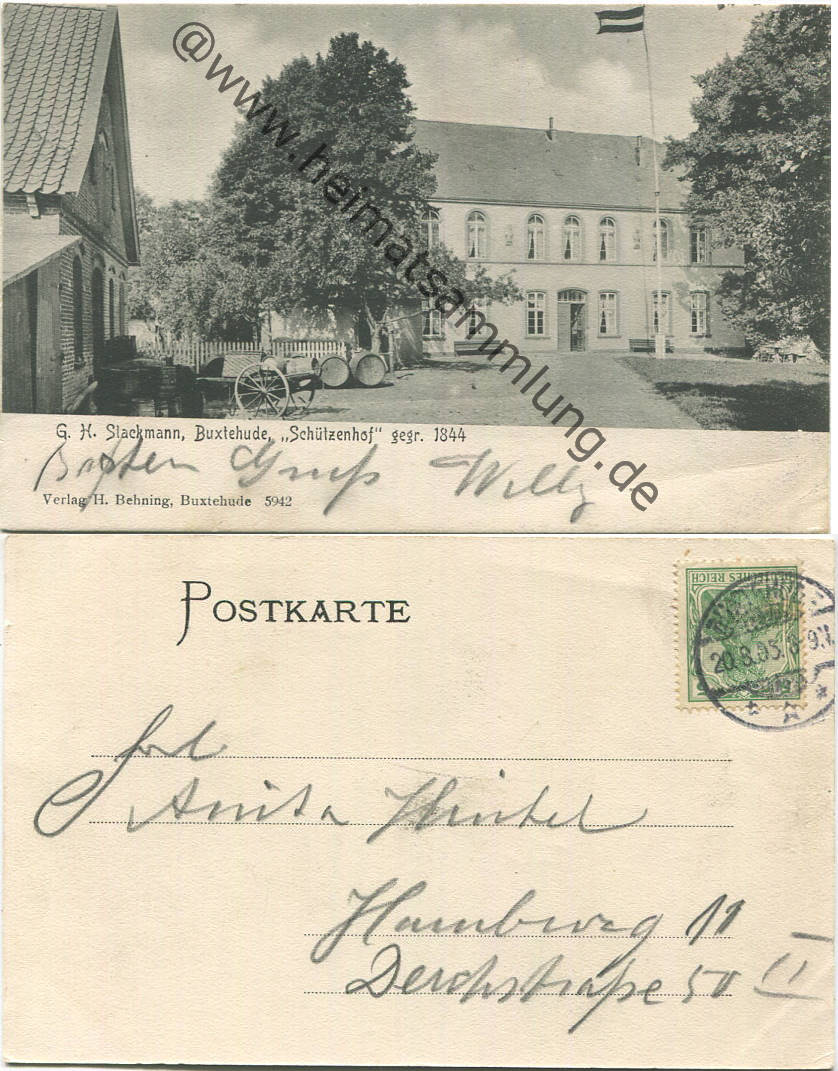 @www.heimatsammlung.de
G. H. Slackmann, Buxtehude, „Schützenhof" gegr. 1844
Besten Gruß Willy
Verlag H. Behning, Buxtehude 5942
POSTKARTE
DEUTSCHES REICH
20.8.05.
Frl
Anita
Hamburg 11
50 II